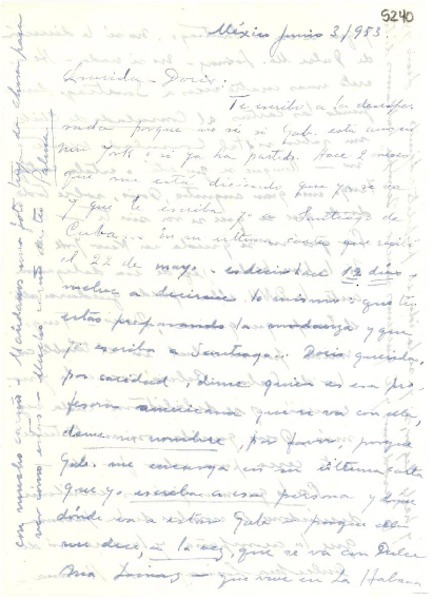 5240
México Junio 3/953
Querida Doris:
Te escribo a la desespe-
rada porque no sé si Gab. está aún en
New York o si ya ha partido. Hace 2 meses
que me está diciendo que ya se va
y que le escriba a Santiago de
Cuba... En su última carta que recibí
el 22 de mayo - es decir hace 12 días -
vuelve a decirme lo mismo: que tú
estás preparando la mudanza y que
le escriba a Santiago... Doris querida,
por caridad, dime quién es esa pro-
fesora americana que se va con ella,
dame su nombre, por favor, porque
Gab. me encarga en su última carta
que yo escriba a esa persona y
dónde va a estar Gab. porque ella
me dice, a la vez, que se va con Dulce
Ma Loinaz - que vive en La Habana
con mucho cariño - Mándanos una foto tuya de ahora para
ver cómo eres - Mucho cariño de tu Palma